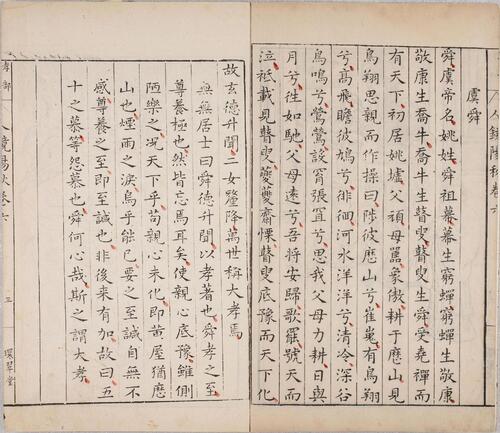 人鏡陽秋卷六
虞舜
舜虞帝名姚姓舜祖幕幕生窮蟬窮蟬生敬康
敬康生喬牛喬牛生瞽叟瞽叟生舜受堯禪而
有天下初居姚墟父頑母嚚象傲耕于歷山見
鳥翔思親而作操曰陟彼歷山兮崔嵬有鳥翔
兮高飛瞻彼鳩兮徘徊河水洋洋兮清冷深谷
鳥鳴兮鶯鶯設罥張罝兮思我父母力耕日與
月兮徃如馳父母遠兮吾將安歸歌罷號天而
泣祗載見瞽叟夔夔齋慄瞽叟底豫而天下化
故玄德升聞二女釐降萬世稱大孝焉
無無居士曰舜德升聞以孝著也舜孝之至
尊養極也然皆忘焉耳矣使親心底豫雖側
陋樂之况天下乎苟親心未化即黃屋猶歷
山也煙雨之淚烏乎能已要之至誠自無不
感尊養之至即至誠也非後來有加故曰五
十之慕等怨慕也舜何心哉斯之謂大孝
孝部 人鏡陽秋卷六 三 環翠堂